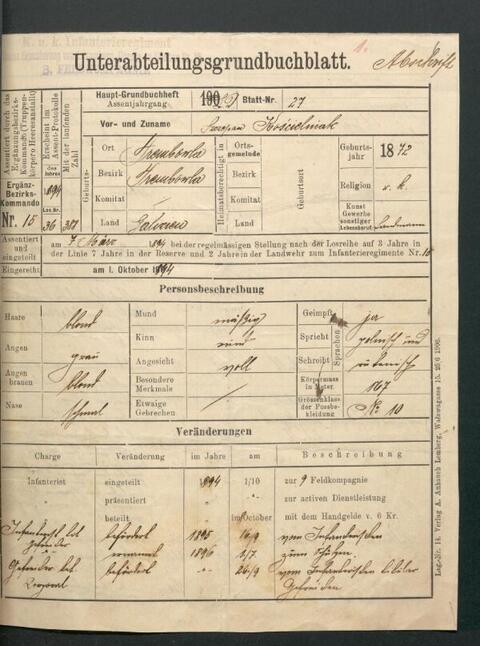 K. u. k. Infanterieregiment
1.
Unterabteilungsgrundbuchblatt.
Abschrift
Assentiert durch das Ergänzungsbezirks-Kommando (Truppenkörpero Heeresanstalt)
Erscheint im Assent-Protokolle
des Jahres
1894
Los-Nr.
36
Mit der laufenden Zahl
Ergänz-Bezirks-Kommando
Nr. 15
Haupt-Grundbuchheft
Assentjahrgang
Blatt-Nr. 27
Vor- und Zuname
Kościelniak
Geburts-
Ort Trembowla
Bezirk Trembowla
Komitat /
Land Galizien
Heimatsberechtigt in
Orts-gemeinde
Bezirk
Komitat
Land
Geburtsort
Geburts-jahr 1872
Religion r. k.
Kunst Gewerbe sonstiger Lebensberuf Landmann
Assentiert und eingeteilt
am 7. März 1894 bei der regelmässigen Stellung nach der Losreihe auf 3 Jahre in
der Linie 7 Jahre in der Reserve und 2 Jahre in der Landwehr zum Infanterieregimente Nr. 15
Eingereiht am 1. Oktober 1894
Personsbeschreibung
Haare blond
Augen grau
Augenbrauen blond
Nase schmal
Mund mäßig
Kinn rund
Angesicht voll
Besondere Merkmale /
Etwaige Gebrechen /
Geimpft ja
Sprachen
Spricht polnisch und
Schreibt ruthenisch
Körpermass in Meter 167
Grössenklasse der Fussbekleidung No 10
Veränderungen
Charge Veränderung im Jahre am Beschreibung
Infanterist eingeteilt 1894 1/10 zur 9 Feldkompagnie
präsentiert zur activen Dienstleistung
beteilt im October mit dem Handgelde v. 6 Kr.
Infanterist tit Gefreiter befördert 1895 16/9 vom Infanteristen
ernannt 1896 1/7 zum Schützen
Gefreiter tit. Corporal befördert 26/9 vom Infanteristen titular
Gefreiten
Lag.-Nr. 14. Verlag A. Anhauch Lemberg, Wałowagasse 15. 25 6 1906.